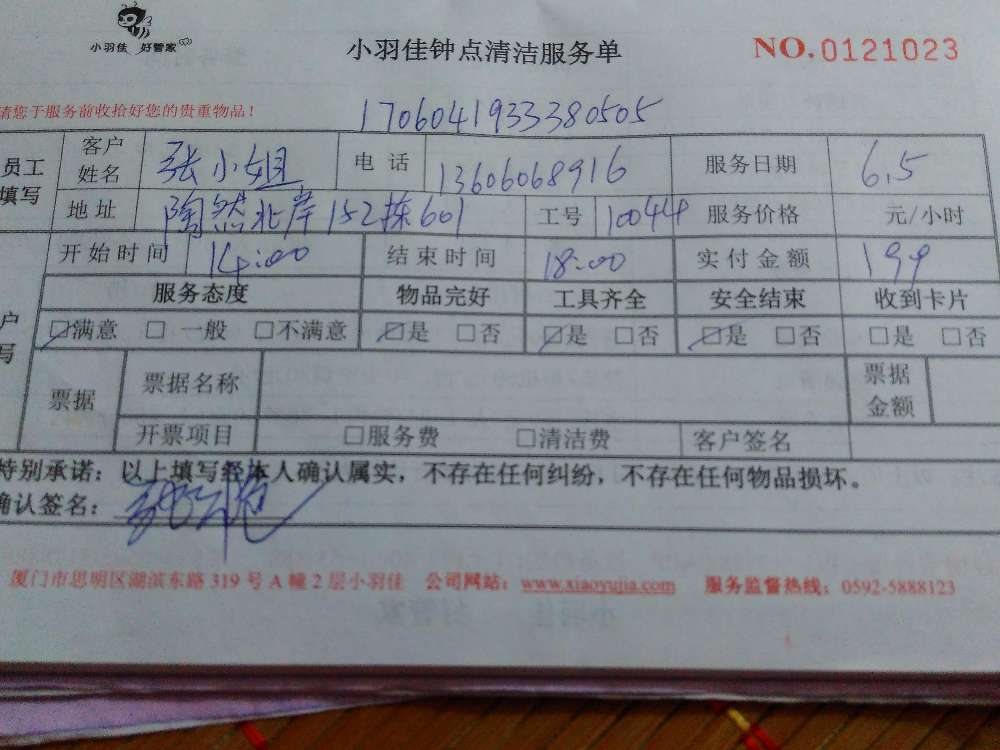 小羽佳 好管家
小羽佳钟点清洁服务单
NO.0121023
请您于服务前收拾好您的贵重物品！
1706041933380505
员工填写 客户姓名 张小姐 电话 13606068916 服务日期 6.5
地址 陶然北岸152栋601 工号 10044 服务价格 元/小时
开始时间 14:00 结束时间 18:00 实付金额 199
户写 服务态度 物品完好 工具齐全 安全结束 收到卡片
☑满意 □一般 □不满意 ☑是 □否 ☑是 □否 ☑是 □否 □是 □否
票据 票据名称 票据金额
开票项目 □服务费 □清洁费 客户签名
特别承诺：以上填写经本人确认属实，不存在任何纠纷，不存在任何物品损坏。
确认签名：
厦门市思明区湖滨东路319号A幢2层小羽佳 公司网站：www.xiaoyujia.com 服务监督热线：0592-5888123